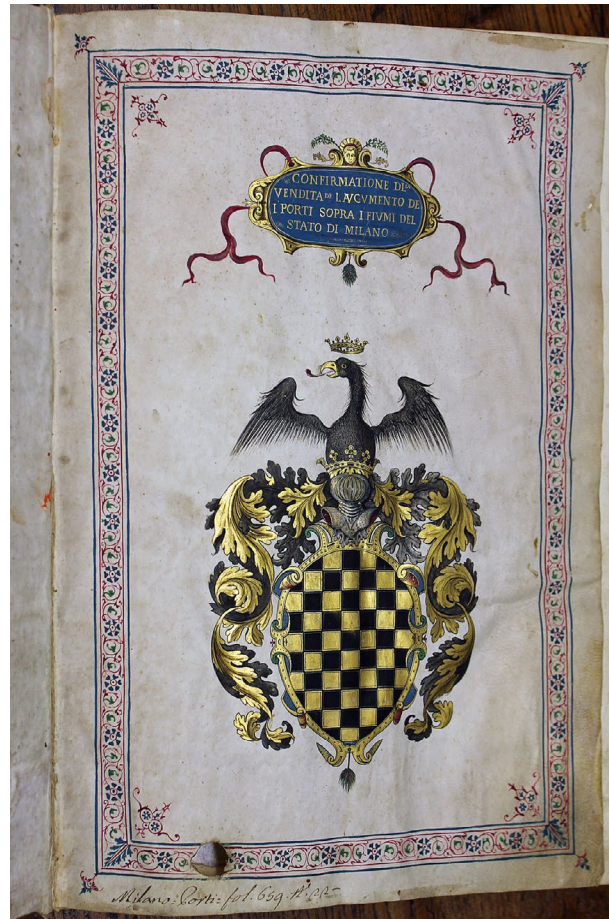 CONFIRMATIONE DI LA
VENDITA DI L AVCVMENTO DE
I PORTI SOPRA I FIVMI DEL
STATO DI MILANO
Milano: Porti: fol. 639. n°. 22